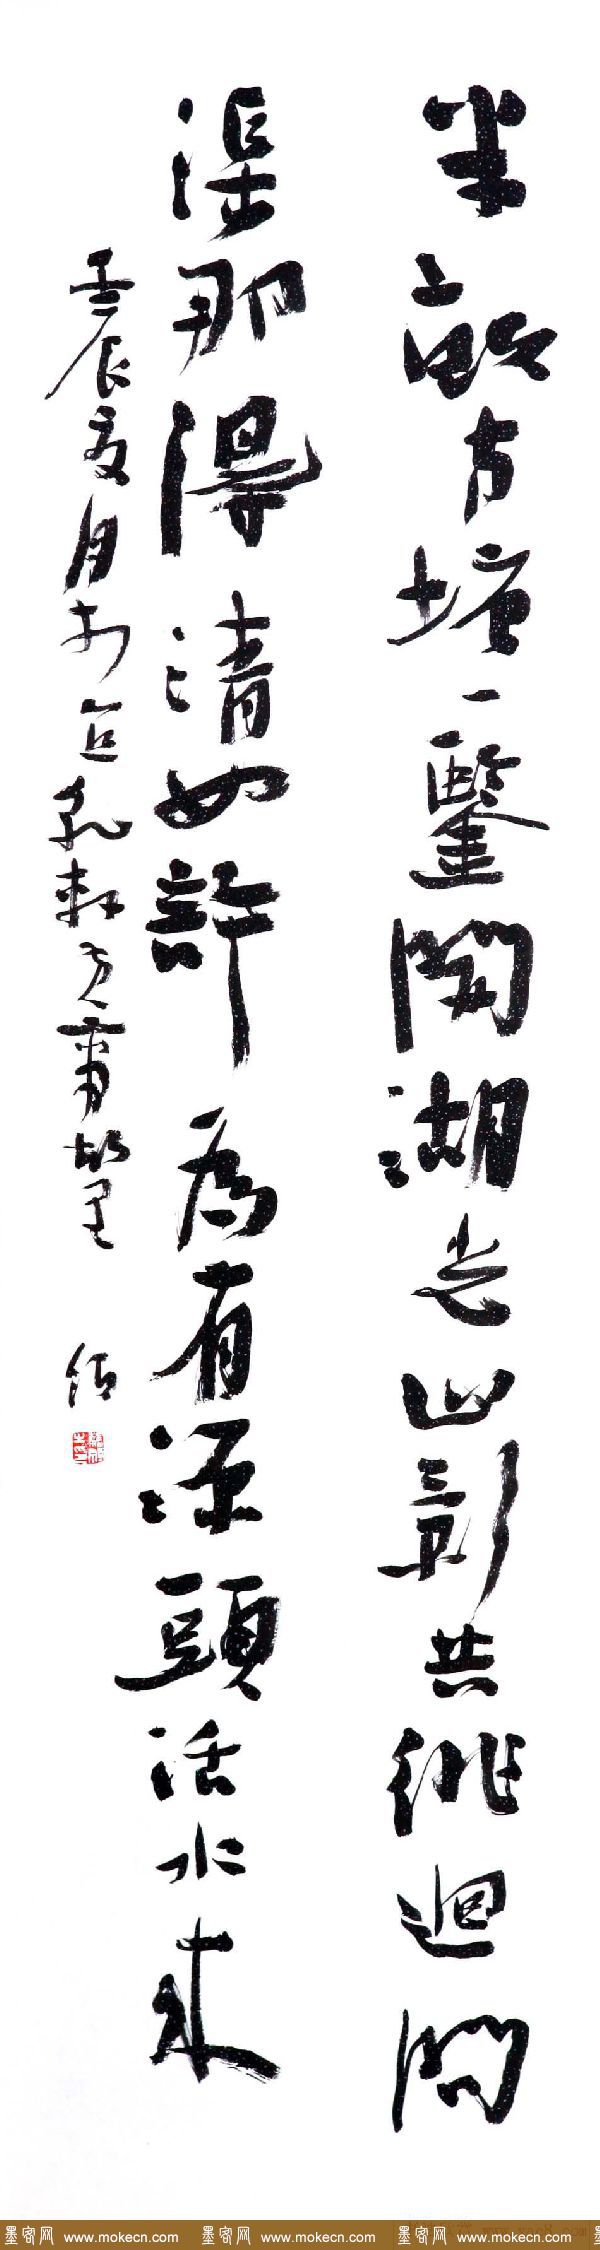 半畝方塘一鑿開湖光山影共徘迴問
渠那得清如許為有源頭活水來
壬辰夏月於
墨客网 www.mokecn.com 墨客网 www.mokecn.com 墨客网 www.mokecn.com